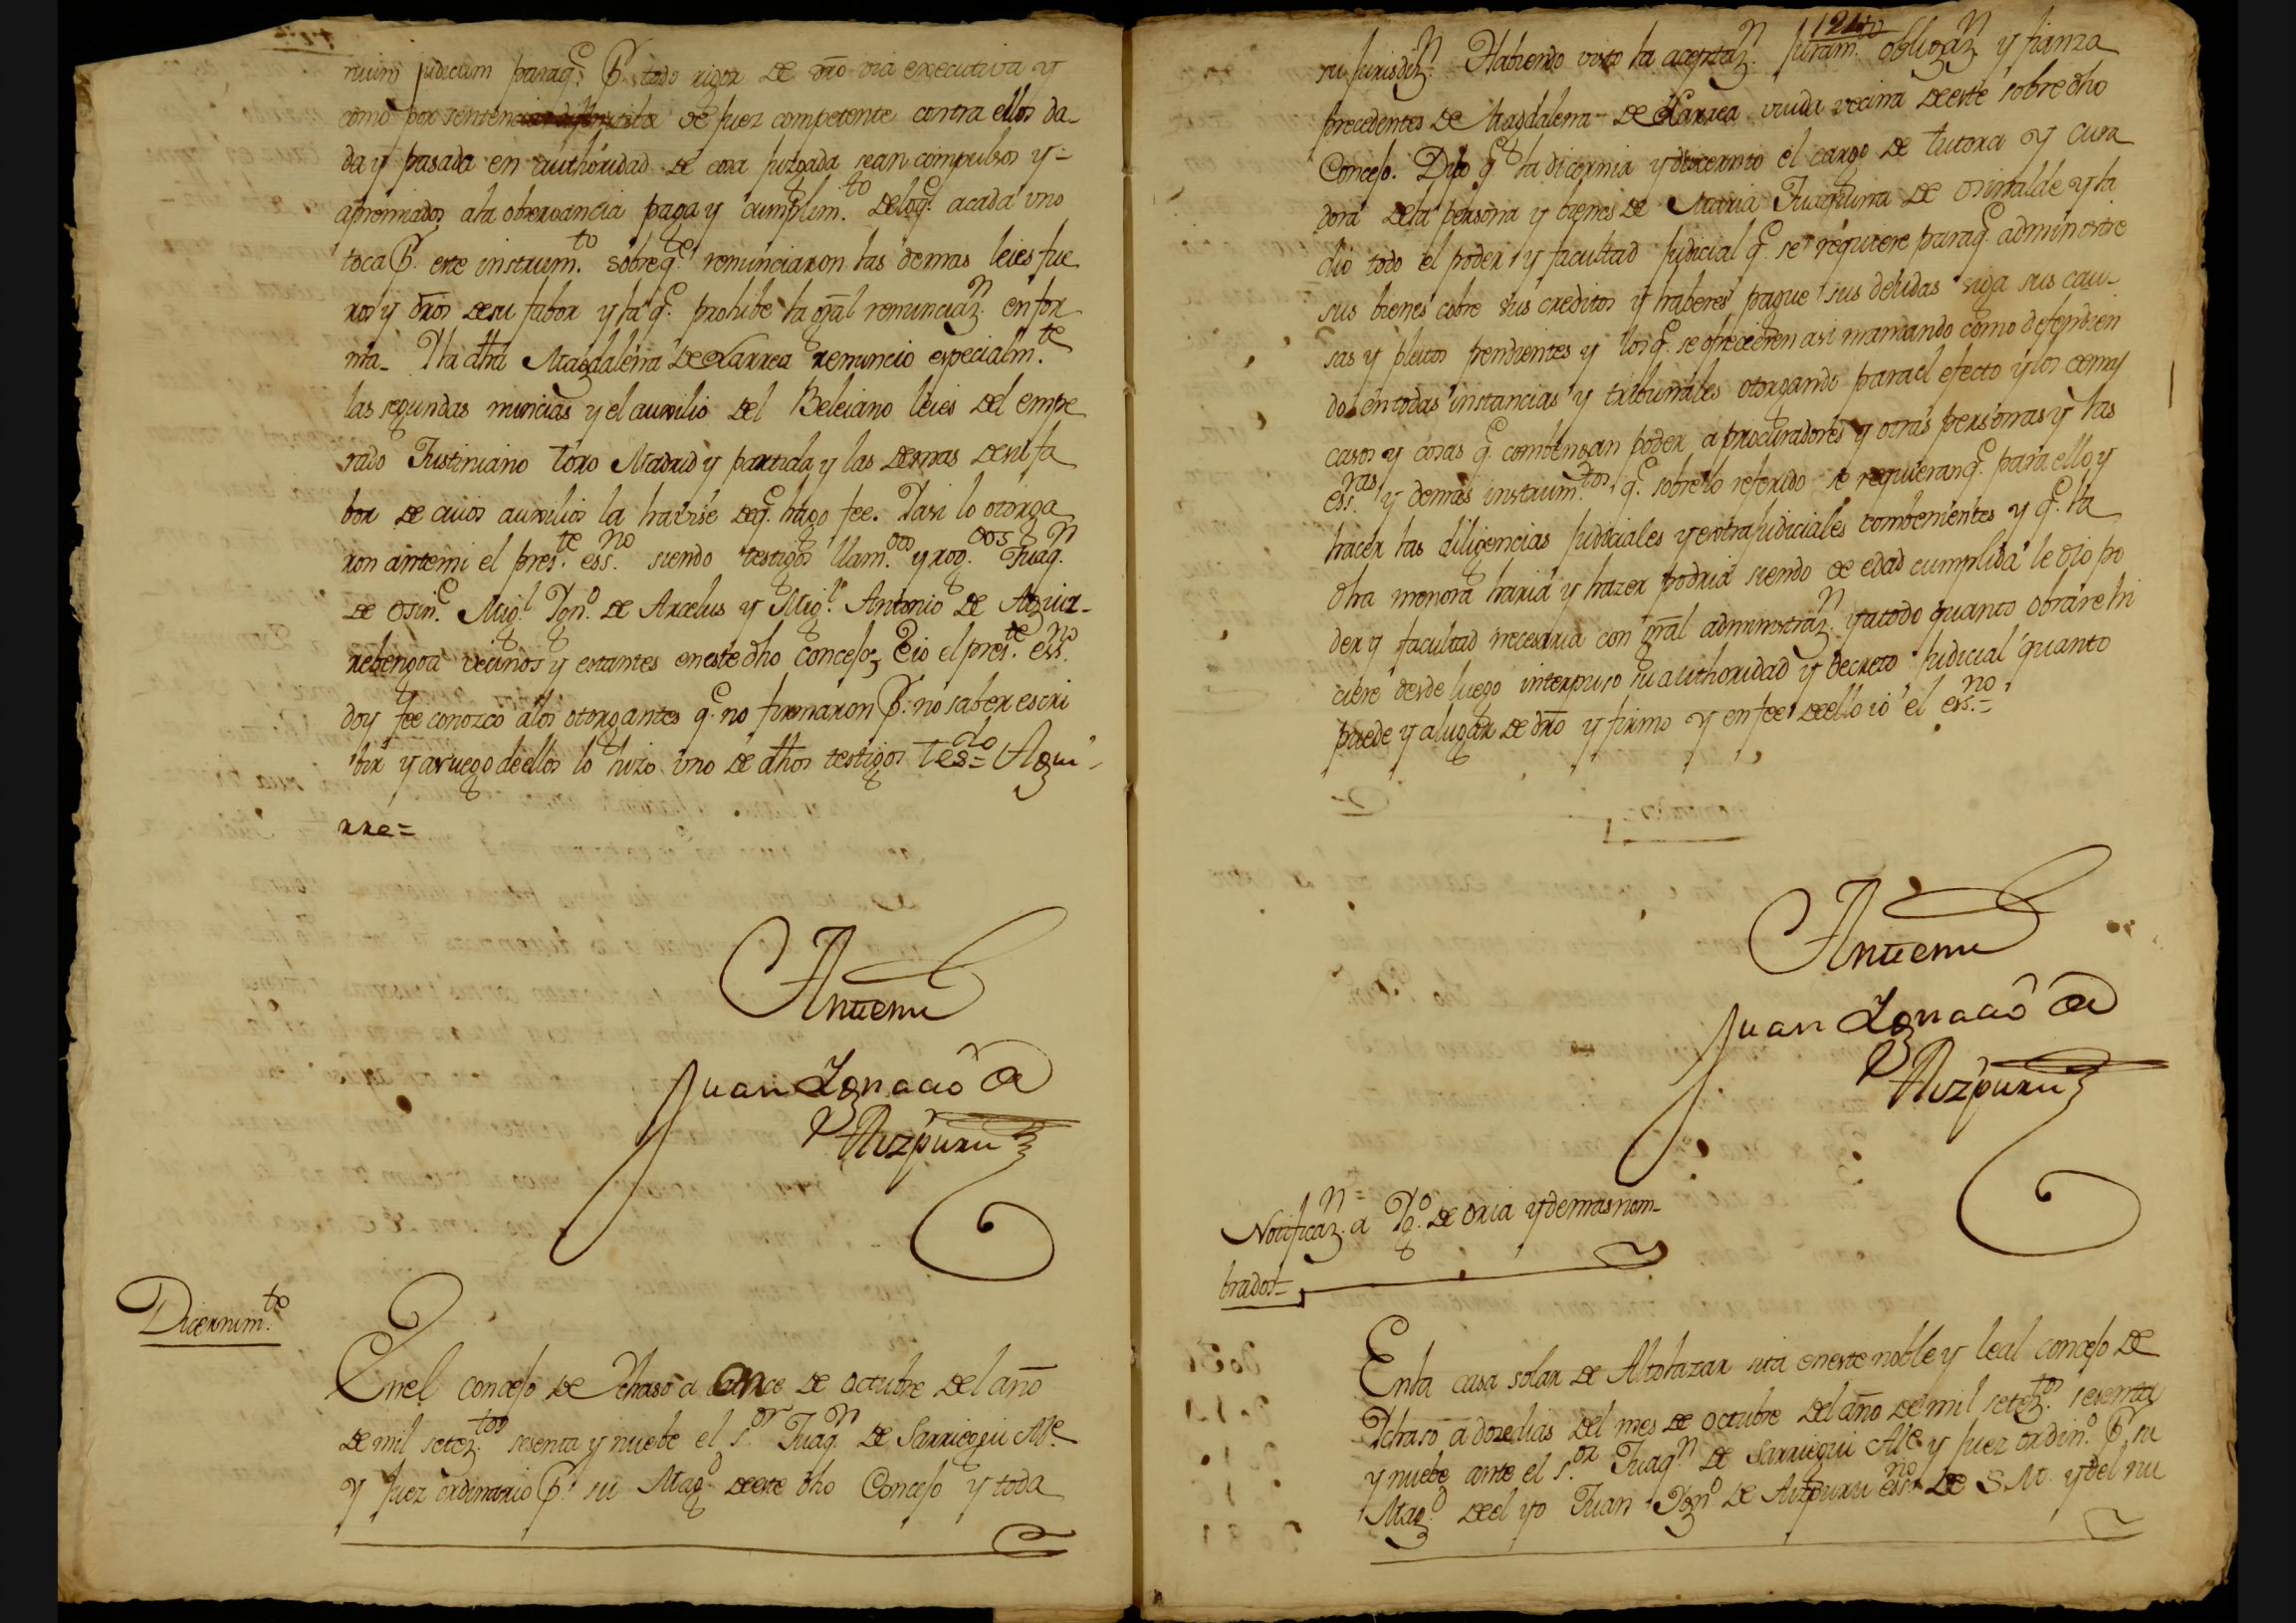 nium judicium paraq.e P. todo rigor de dro via executiva y
como por sentencia de Juez competente contra ellos da-
da y pasada en authoridad de cosa juzgada sean compulsos y-
apremiados ala obserbancia paga y cumplim.to deloq.e acada uno
toca P. este instrum.to sobreq.e renunciaron las demas leies fue
ros y dros desu fabor y la q.e prohibe la gral renunciaz.n enfor
ma- Yla dha Magdalena de Larrea renuncio especialm.te
las segundas nuncias y el auxilio del Beleiano leies del empe
rado Justiniano Toro Madrid y partida y las demas desu fa
bor de cuios auxilios la havisé deq.e hago fee. Yasi lo otorga
ron antemi el pres.te ess.no siendo testigos llam.dos y rog.dos Juaq.n
de Osin.e Mig.l Ygn.o de Arcelus y Mig.l Antonio de Aguir-
rebengoa vecinos y estantes eneste dho concejo, Eio el pres.te ess.no
doy fee conozco alos otorgantes q.e no firmaron P. no saber escri
bir y aruego deellos lo hizo uno de dhos testigos tes.do = Agui-
rre=
Antemi
Juan Ignacio de
Aizpuru
Dicernim.to
Enel concejo de Ychaso a once de octubre del año
de mil setez.tos sesenta y nuebe el s.or Juaq.n de Sarriegui Alc.e
y Juez ordinario P. su Mag.d deeste dho Concejo y toda
121
su Jurisdiz.n Habiendo visto la aceptaz.n Juram.to obligaz.n y fianza
precedentes de Magdalena de Larrea viuda vecina deeste sobredho
Concejo. Dijo q.e la dicernia y dicernio el cargo de tutora y cura
dora dela persona y bienes de Maria Juaquina de Osinalde y la
dio todo el poder y facultad judicial q.e se requiere paraq.e administre
sus bienes cobre sus creditos y haberes pague sus deudas siga sus cau-
sas y pleitos pendientes y los q.e se ofrecieren asi mandando como defendien
do entodas instancias y tribunales otorgando parael efecto y los demas
casos y cosas q.e combengan poder a procuradores y otras personas y las
ess.ras y demas instrum.tos q.e sobre lo referido se requieran q.e para ello y
hacer las diligencias judiciales y extrajudiciales combenientes y q.e la
dha menora haria y hazer podria siendo de edad cumplida le dio po
der y facultad necesaria con gral administraz.n yatodo quanto obrare hi
ciere desde luego interpuso su authoridad y decreto judicial quanto
puede y alugar de dro y firmo y en fee deello io el ess.no=
Antemi
Juan Ignacio de
Aizpuru
Notificaz.n a Yg.o de Oria y demas nom-
brados=
Enla casa solar de Altolazar sita eneste noble y leal concejo de
Ychaso a doze dias del mes de octubre del año de mil setez.tos sesenta
y nuebe ante el s.or Juaq.n de Sarriegui Alc.e y Juez ordin.o P. su
Mag.d deel yo Juan Ygn.o de Aizpuru ess.no de S.M. y del nu